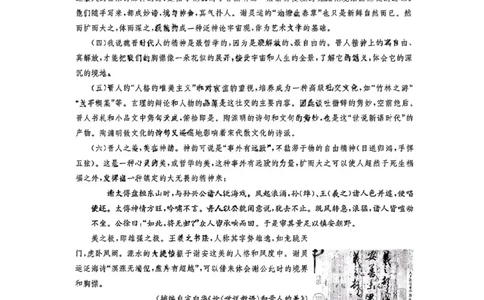 他们随手写来，都成妙谛，境与神会，真气扑人。谢灵运的“池塘生春草”也只是新鲜自然而已。然
而扩而大之，体而深之，就能构成一种泛神论宇宙观，作为艺术文学的基础。
（四）我说魏晋时代人的精神是最哲学的，因为是最解放的、最自由的。晋人胸襟上的高自由、
真解放，才能把我们的胸襟像一朵花似的展开，接受宇宙和人生的全景，了解它的意义，体会它的深
沉的境地。
（五）晋人的“人格的唯美主义”和对友谊的重视，培养成为一种高级社交文化，如“竹林之游”
“兰亭禊集”等。玄理的辩论和人物的品藻是这社交的主要内容。因此谈吐措辞的隽妙，空前绝后。
晋人书札和小品文中隽句天成，俯拾即是。陶渊明的诗句和文句的隽妙，也是这“世说新语时代”的
产物。陶渊明散文化的诗句又遥遥地影响着宋代散文化的诗派。
（六）晋人之美，美在神韵。神韵可说是“事外有远致”，不黏滞于物的自由精神（目送归鸿，手挥
五弦）。这是一种心灵的美，或哲学的美，这种事外有远致的力量，扩而大之可以使人超然于死生祸
福之外，发挥出一种镇定的大无畏的精神来：
谢太傅盘桓东山时，与孙兴公诸人泛海戏。风起浪涌，孙（绰）、王（羲之）诸人色并遽，便唱
使还。太傅神情方旺，吟啸不言。舟人以公貌闲意说，犹去不止。既风转急，浪猛，诸人皆喧动
不坐。公徐曰：“如此，将无归？”众人皆承响而回。于是审其量足以镇安朝野。
美之极，即雄强之极。王羲之书法，人称其字势雄逸，如龙跳天
门，虎卧凤阙。淝水的大捷植根于谢安这美的人格和风度中。谢灵
运泛海诗“溟涨无端倪，虚舟有超越”，可以借来体会谢公此时的境界
和胸襟。